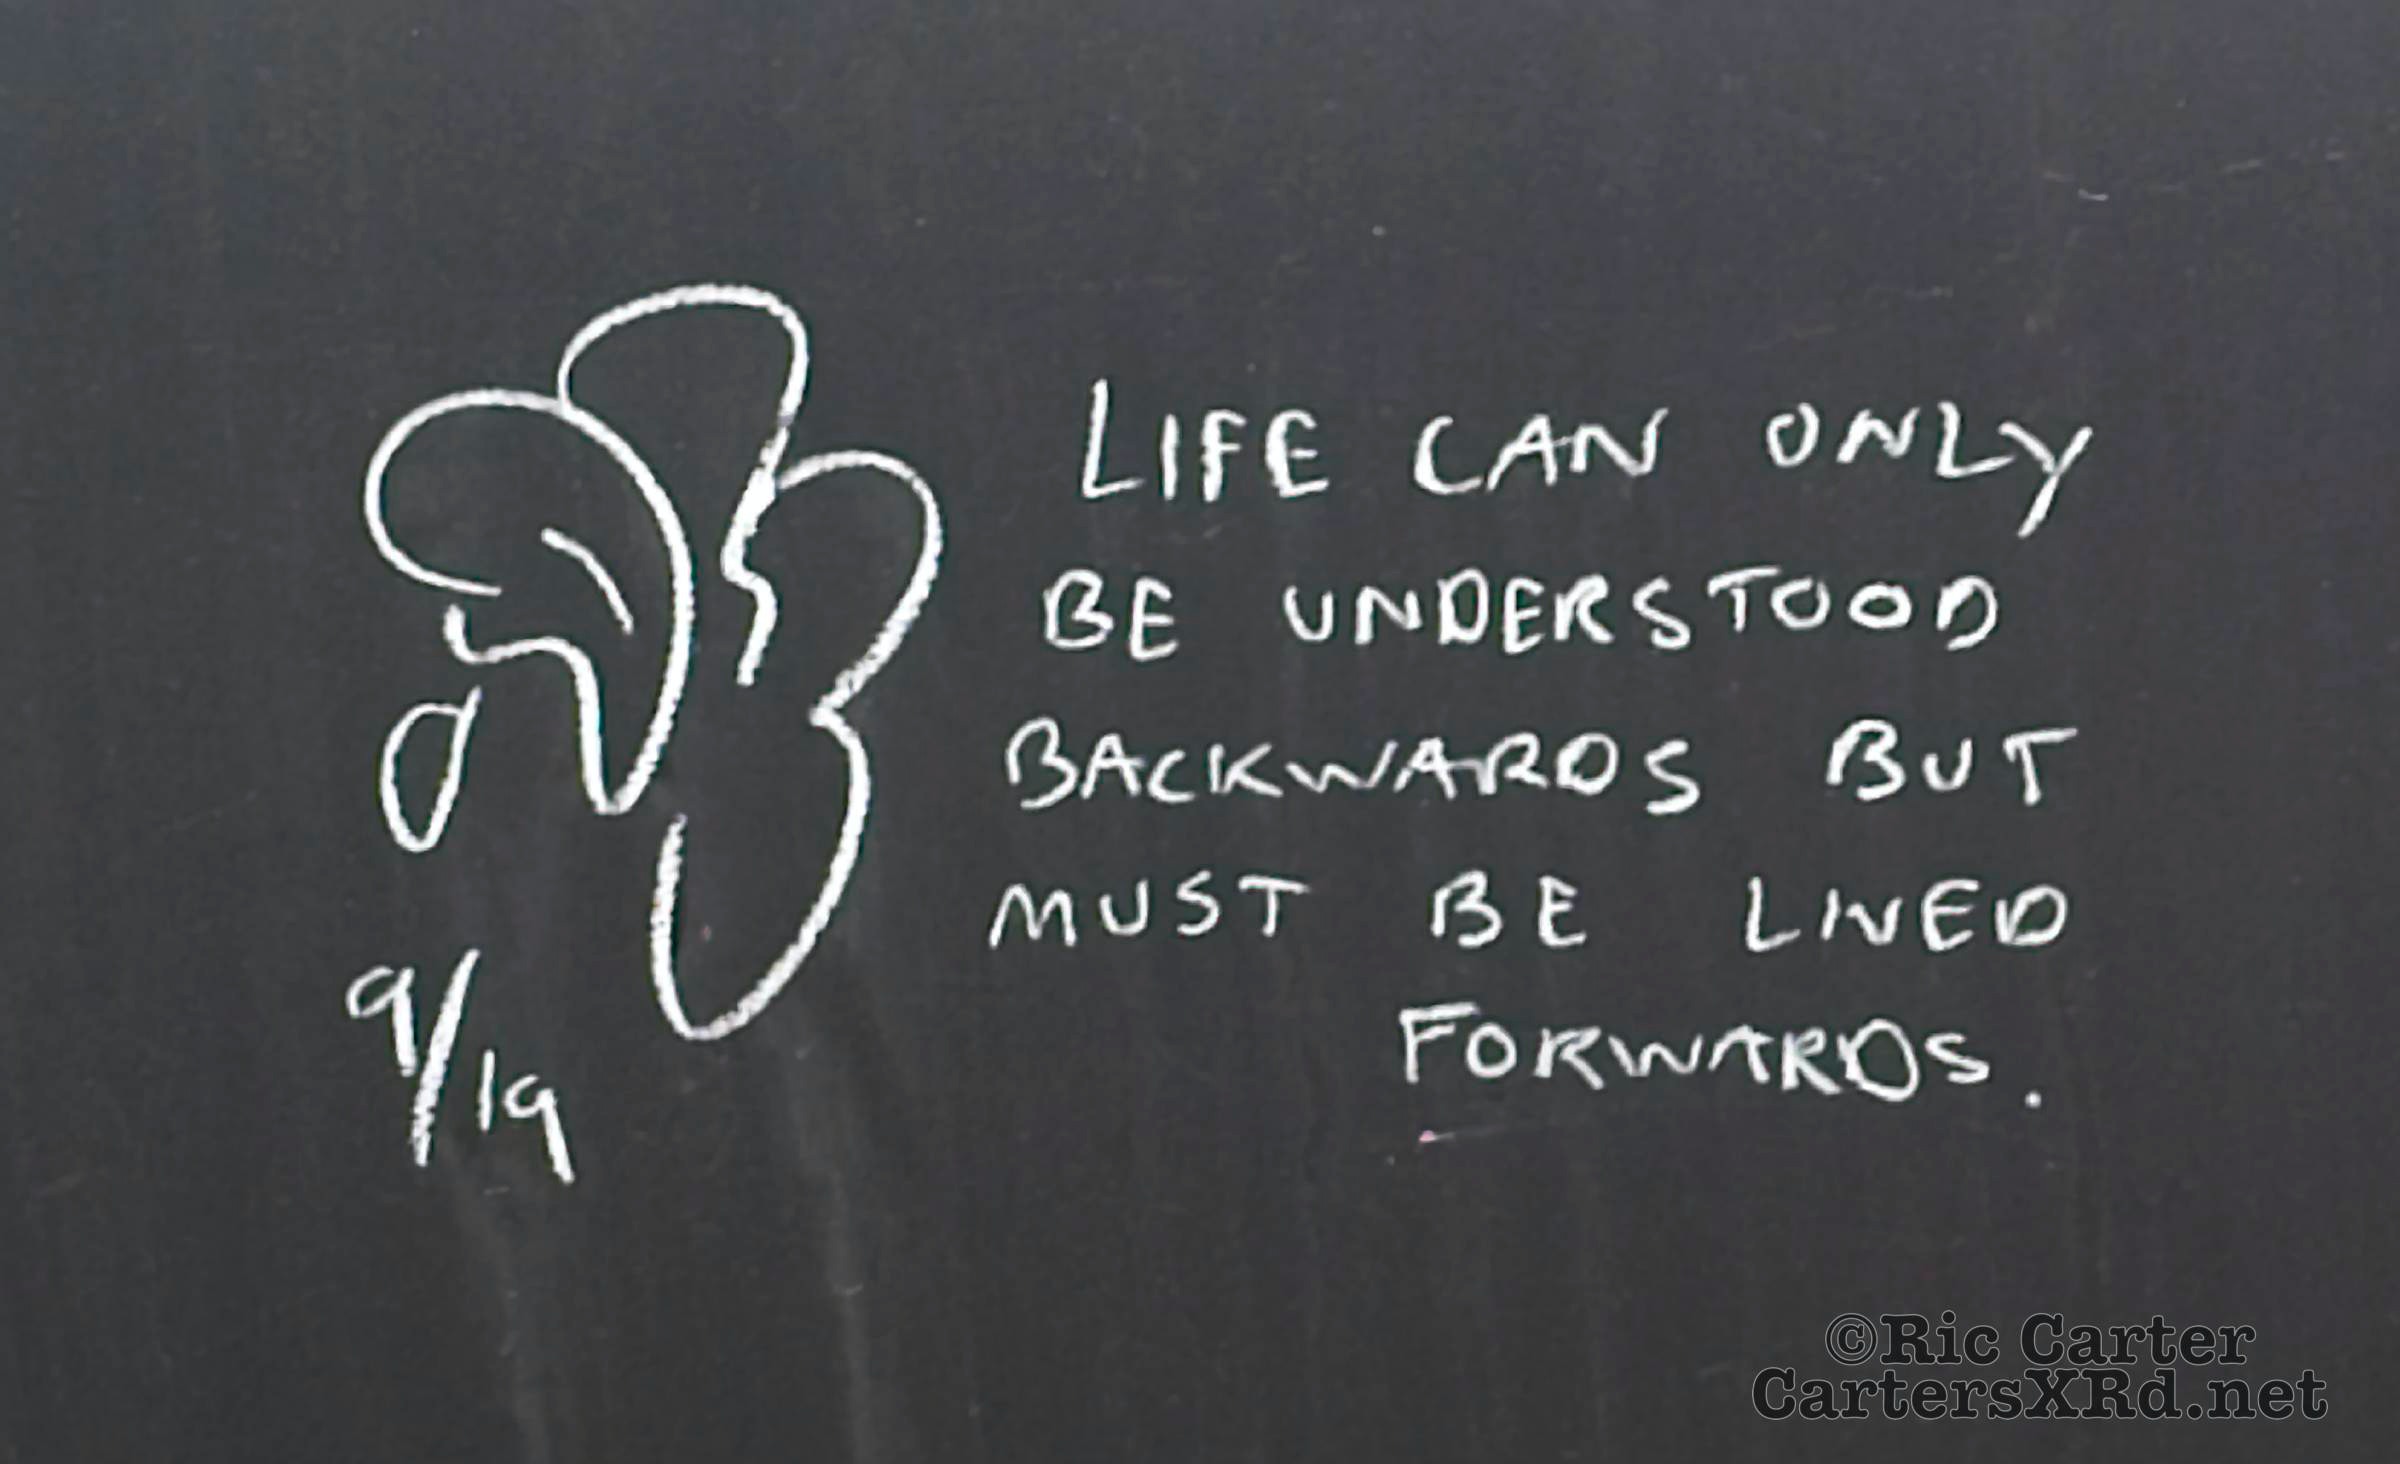 LIFE CAN ONLY
BE UNDERSTOOD
BACKWARDS BUT
MUST BE LIVED
FORWARDS.
9/19
©Ric Carter
CartersXRd.net